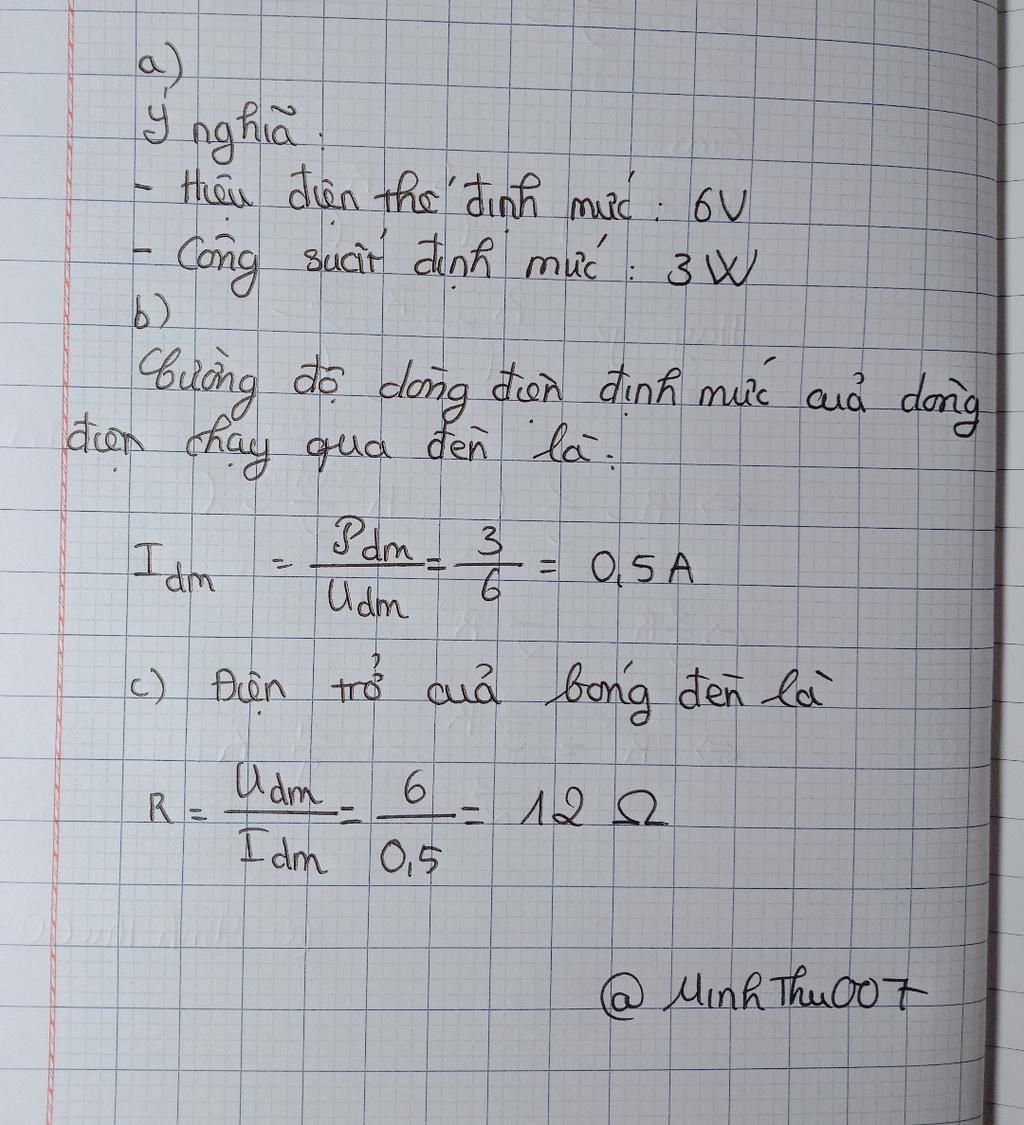 a)
Ý nghĩa:
- Hiệu điện thế định mức: 6V
- Công suất định mức: 3W
b)
Cường độ dòng điện định mức của dòng
điện chạy qua đèn là:
I dm = P dm / U dm = 3 / 6 = 0,5 A
c) Điện trở của bóng đèn là
R = U dm / I dm = 6 / 0,5 = 12 Ω
@ MinhThu007